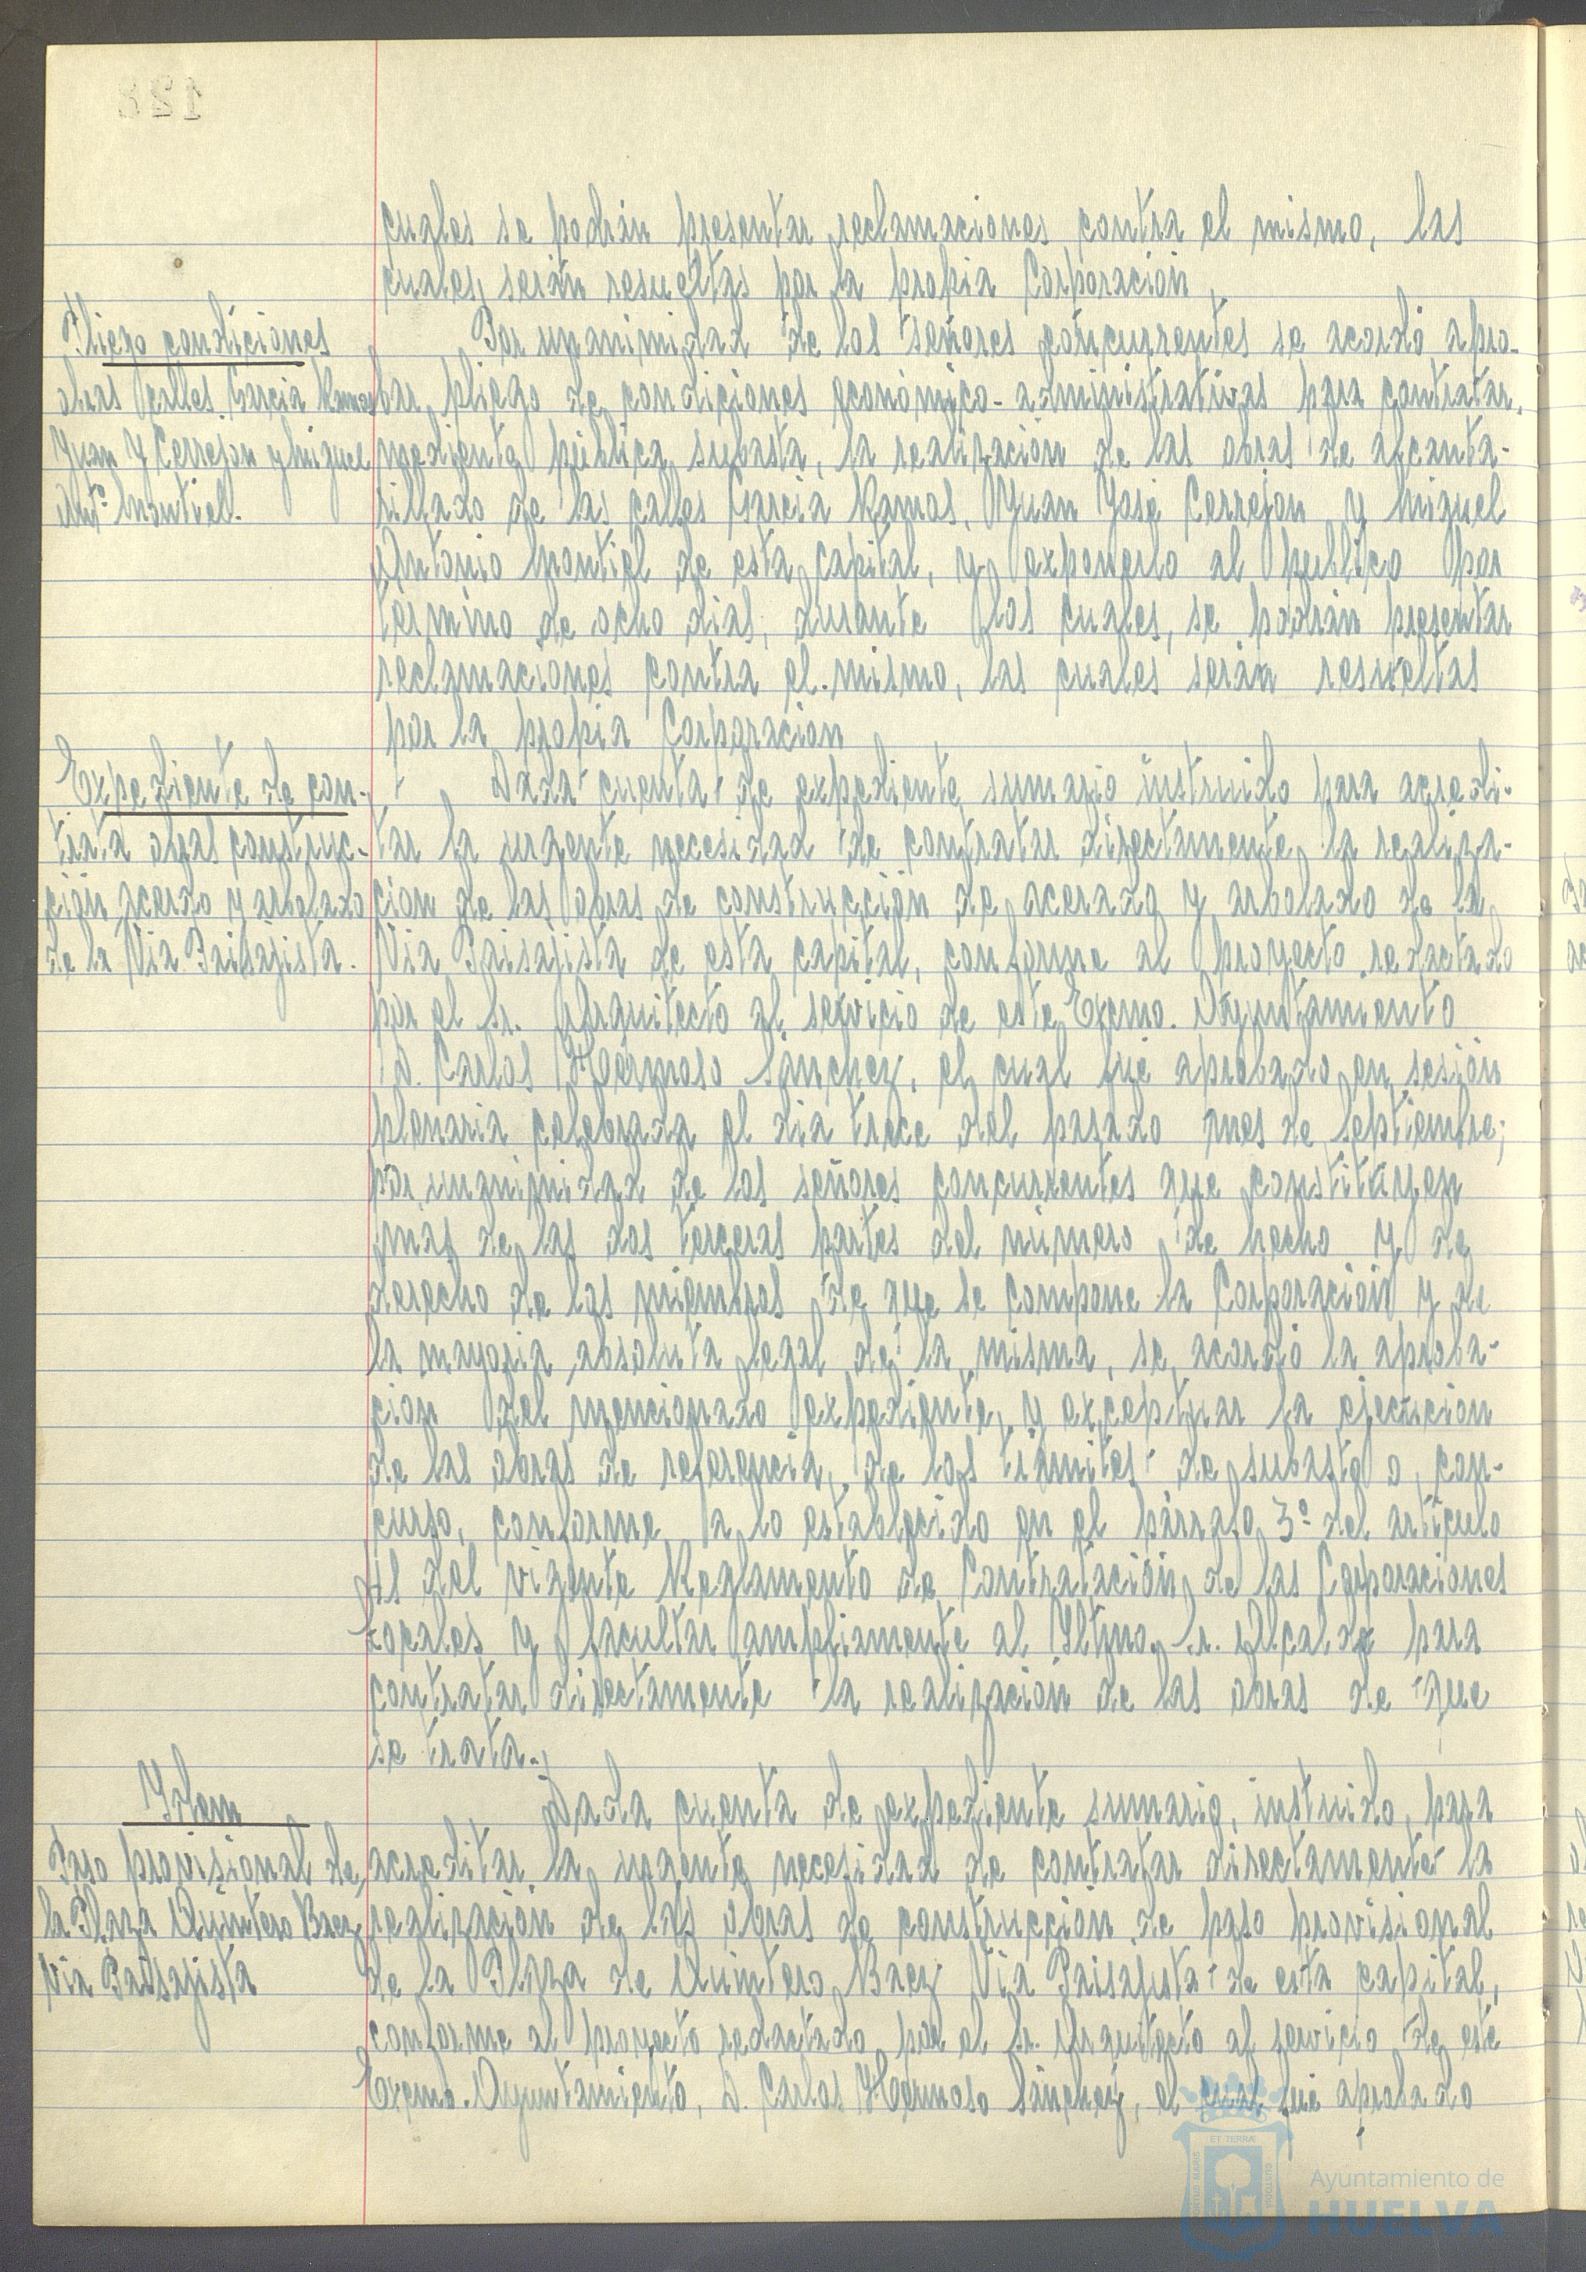 cuales se podrán presentar reclamaciones contra el mismo, las
cuales, serán resueltas por la propia Corporación.
Pliego condiciones
obras calles Garcia Ramos
Juan J Cerrejon y Miguel
Antº Montiel.
Por unanimidad de los señores concurrentes se acordó apro-
bar pliego de condiciones económico-administrativas para contratar,
mediente pública subasta, la realización de las obras de alcanta-
rillado de las calles Garcia Ramos, Juan José Cerrejon y Miguel
Antonio Montiel de esta capital, y exponerlo al publico por
término de ocho dias, durante los cuales, se podrán presentar
reclamaciones contra el mismo, las cuales serán resueltas
por la propia Corporacion
Expediente de con-
trata obras construc-
ción acerdo y arbolado
de la Via Paisajista.
Dada cuenta de expediente sumario instruido para acredi-
tar la urgente necesidad de contratar directamente la realiza-
cion de las obras de construcción de acerado y arbolado de la
Via Paisajista de esta capital, conforme al proyecto redactado
por el Sr. Arquitecto al servicio de este Excmo. Ayuntamiento
D. Carlos Hermoso Sánchez, el cual fué aprobado en sesión
plenaria celebrada el dia trece del pasado mes de septiembre;
por unanimidad de los señores concurrentes que constituyen
más de las dos terceras partes del número de hecho y de
derecho de los miembros de que se compone la Corporación y de
la mayoria absoluta legal de la misma, se acordó la aproba-
cion del mencionado expediente, y exceptuar la ejecucion
de las obras de referencia, de los trámites de subasta o con-
curso, conforme a lo establecido en el párrafo 3º del artículo
41 del vigente Reglamento de Contratación de las Corporaciones
Locales y facultar ampliamente al Iltmo. Sr. Alcalde para
contratar directamente la realización de las obras de que
se trata.
Idem
Paso provisional de
la Plaza Quintero Baez
Via Paisajista
Dada cuenta de expediente sumario, instuido, para
acreditar la urgente necesidad de contratar directamente la
realización de las obras de construcción de paso provisional
de la Plaza de Quintero Baez Via Paisajista de esta capital,
conforme al proyecto redactado por el Sr. Arquitecto al servicio de este
Excmo. Ayuntamiento, D. Carlos Hermoso Sánchez, el cual fué aprobado
ET TERRA
Ayuntamiento de
HUELVA